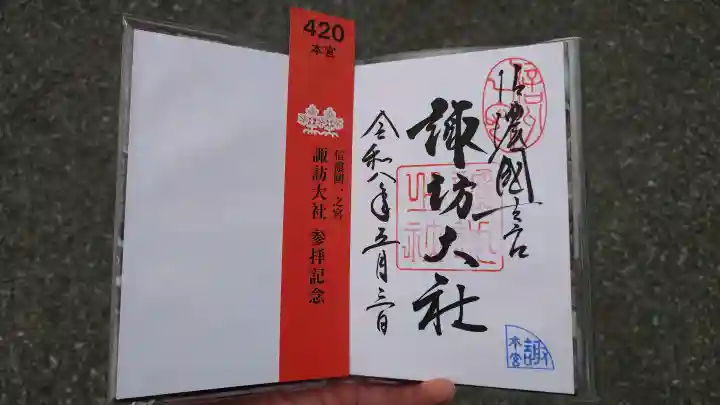 420
本宮
信濃國一之宮
諏訪大社 参拝記念
信濃國一之宮
諏訪大社
令和八年五月三日
諏
本宮